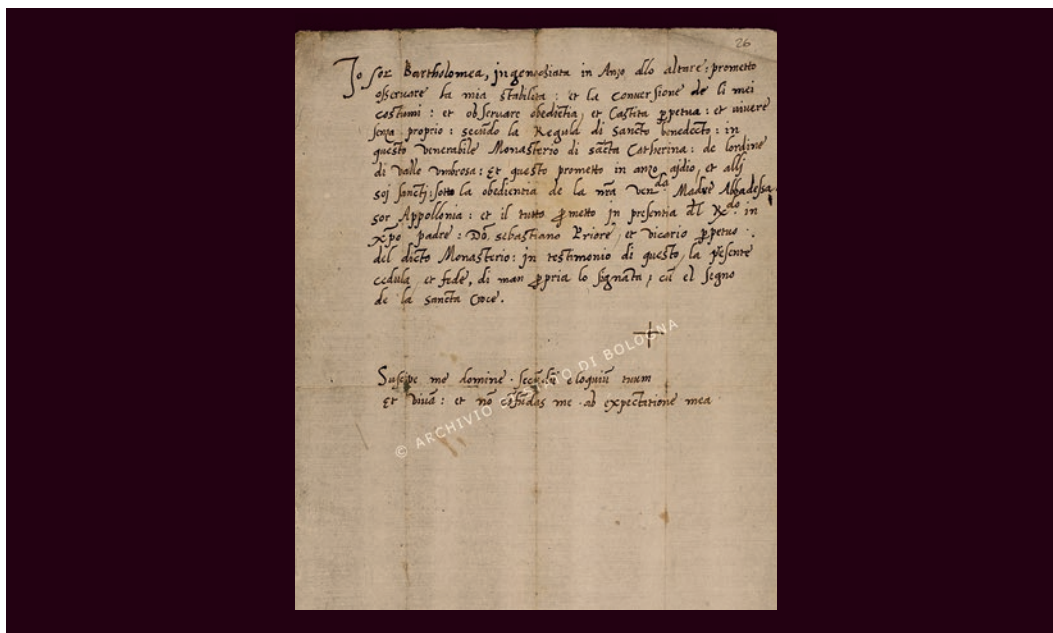 26
Jo Sor Bartholomea, ingenochiata in Anzo allo altare: prometto
osservare la mia stabilita: et la conversione de li mei
costumi: et observare obedietia, et Castita ꝑpetua: et vivere
senza proprio: secūdo la Regula di Sancto benedecto: in
questo venerabile Monasterio di sācta Catherina: de lordine
di valle vmbrosa: Et questo prometto in anzo aidio, et alli
soi sancti: sotto la obedientia de la nr̄a venda Madre Abbadessa
sor Appollonia: et il tutto ꝓmetto in presentia del Rdo. in
xp̄o padre: Dō. sebastiano Priore, et vicario ꝑpetuo
del dicto Monasterio: in testimonio di questo, la p̄sente
cedula, et fede, di man ꝓpria lo signata, cū el segno
de la sancta Croce.
+
Suscipe me domine. secū eloquiū tuum
Et vivā: et nō cōfūdas me. ab expectatione mea
© ARCHIVIO DI STATO DI BOLOGNA